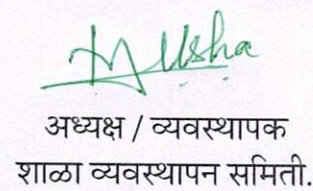 Usha
अध्यक्ष / व्यवस्थापक
शाळा व्यवस्थापन समिती.